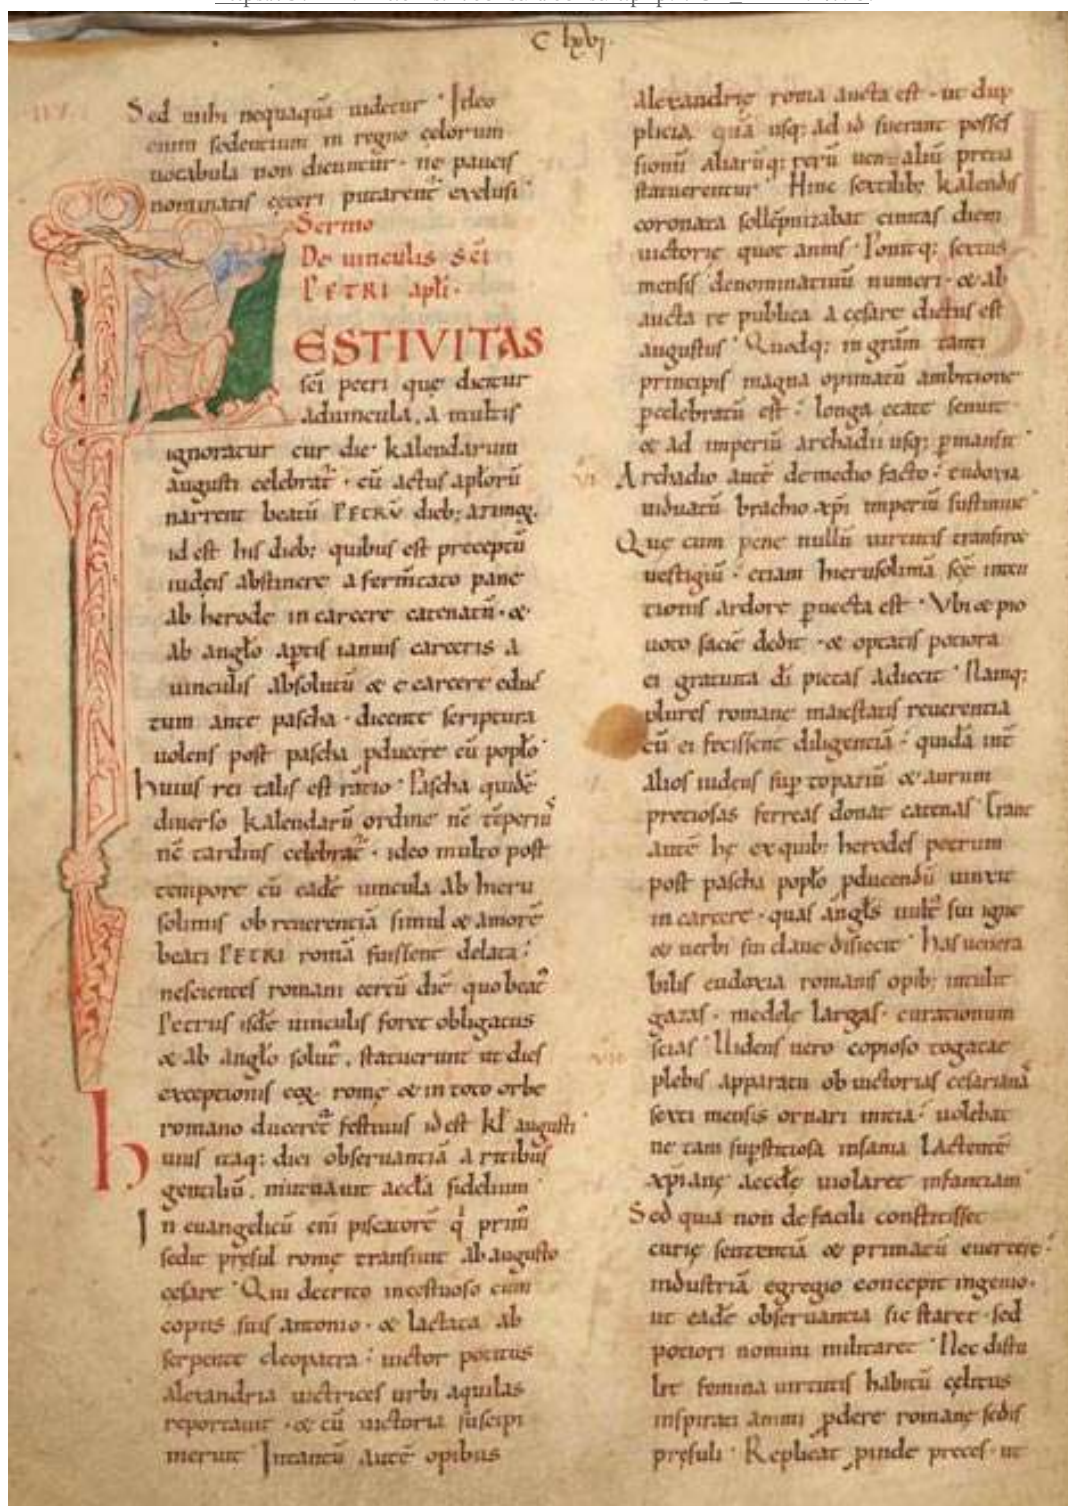 C lxvj.
Sed mihi nequaquā uidetur. Ideo
enim sedentium in regno celorum
uocabula non dicuntur. ne paucis
nominatis ceteri putarent᷑ exclusi.
Sermo
De uinculis sc̄i
PETRI apl̄i.
FESTIVITAS
sc̄i petri que dicitur
aduincula. a multis
ignoratur cur die kalendarum
augusti celebrat᷑. cū actus apl̄orū
narrent beatū PETRV̄ dieb; azimoꝝ.
id est his dieb; quibus est preceptū
iudeis abstinere a ferm̄tato pane
ab herode in carcere catenatū. &
ab angl̄o aptis ianuis carceris a
uinculis absolutū & e carcere educ
tum ante pascha. dicente scriptura
uolens post pascha ꝓducere eū popl̄o.
huius rei talis est ratio. Pascha quidē
diuerso kalendarū ordine nc̄ tēperiuˢ
nc̄ tardius celebrat᷑. ideo multo post
tempore cū eadē uincula ab hieru
solimis ob reuerentiā simul & amorē
beati PETRI romā fuissent delata.
nescientes romani certū diē quo beatꝰ
Petrus isdē uinculis foret obligatus
& ab angl̄o solutꝰ. statuerunt ut dies
exceptionis eoꝝ romę & in toto orbe
romano duceret᷑ festiuus id est kl̄ augusti.
huius itaq; diei obseruantiā a ritibus
gentiliū. mutuauit aeccl̄a fidelium.
In euangelicū eni piscatorē qͥ primꝰ
sedit pręsul romę transiuit ab augusto
cesare. Qui decreto incestuoso cum
copus suis antonio. & lactata ab
serpente cleopatra. uictor potitus
alexandria uictrices urbi aquilas
reportauit. & cū uictoria suscipi
meruit. Intantū autē opibus
alexandrię roma aucta est. ut dup
plicia quā usq; ad id fuerant posses
sionū aliarūq; rerū uenaliū precia
statuerentur. Hinc sextilib; kalendis
coronata sollēpnizabat ciuitas diem
uictorię quot annis. Ponitq; sextus
mensis denominatiuū numeri. & ab
aucta re publica a cesare dictus est
augustus. Quodq; in grām tanti
principis magna opimatū ambitione
ꝑcelebratū est. longa etate senuit.
& ad imperiū archadii usq; ꝑmansit.
Archadio autē demedio facto. eudoxia
uiduatū brachio xp̄i imperiū sustinuit.
Que cum pene nullū uirtutis transiret
uestigiū. etiam hierusolimā scē inten
tionis ardore ꝑuecta est. Vbi & pio
uoto faciē dedit. & optatis potiora
ei gratuita di pietas adiecit. Namq;
plures romane maiestatis reuerentia
cū ei fecissent diligentiā. quidā int̄
alios iudeus suꝑ topaziū & aurum
preciosas ferreas donat catenas. Erant
autē hę ex quib; herodes petrum
post pascha popl̄o ꝓducendū uinxit
in carcere. quas angl̄s uult᷑ sui igne
& uerbi sui claue disiecit. Has uenera
bilis eudoxia romanis opib; intulit
gazas. medele largas. curationum
scias. Uidens uero copioso togatae
plebis apparatu ob uictorias cesarianā
sexti mensis ornari inicia. uolebat
ne tam suꝑsticiosa insania lactentē
xp̄ianę aeccl̄ę uiolaret infantiam.
Sed quia non de facili constitisset
curię sententiā & primatū euertere.
industriā egregio concepit ingenio.
ut eadē obseruantia sic staret. sed
potiori nomini militaret. Nec distu
lit femina uirtutis habitū cęlitus
inspirati animi ꝓdere romanę sedis
pręsuli. Replicat ꝓinde preces. ut